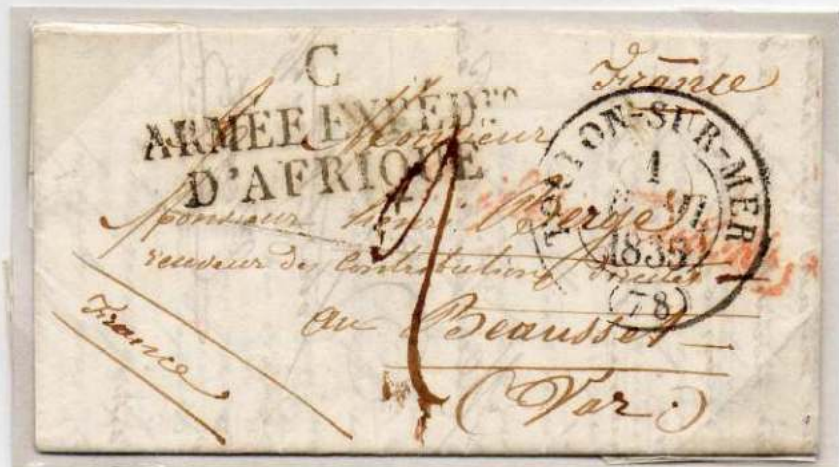 C
ARMÉE EXPÉD.
D'AFRIQUE
France
TOULON-SUR-MER
1
1835
(78)
Monsieur
Monsieur Henri Verge
receveur des Contributions
au Beausset
(Var)
France
2